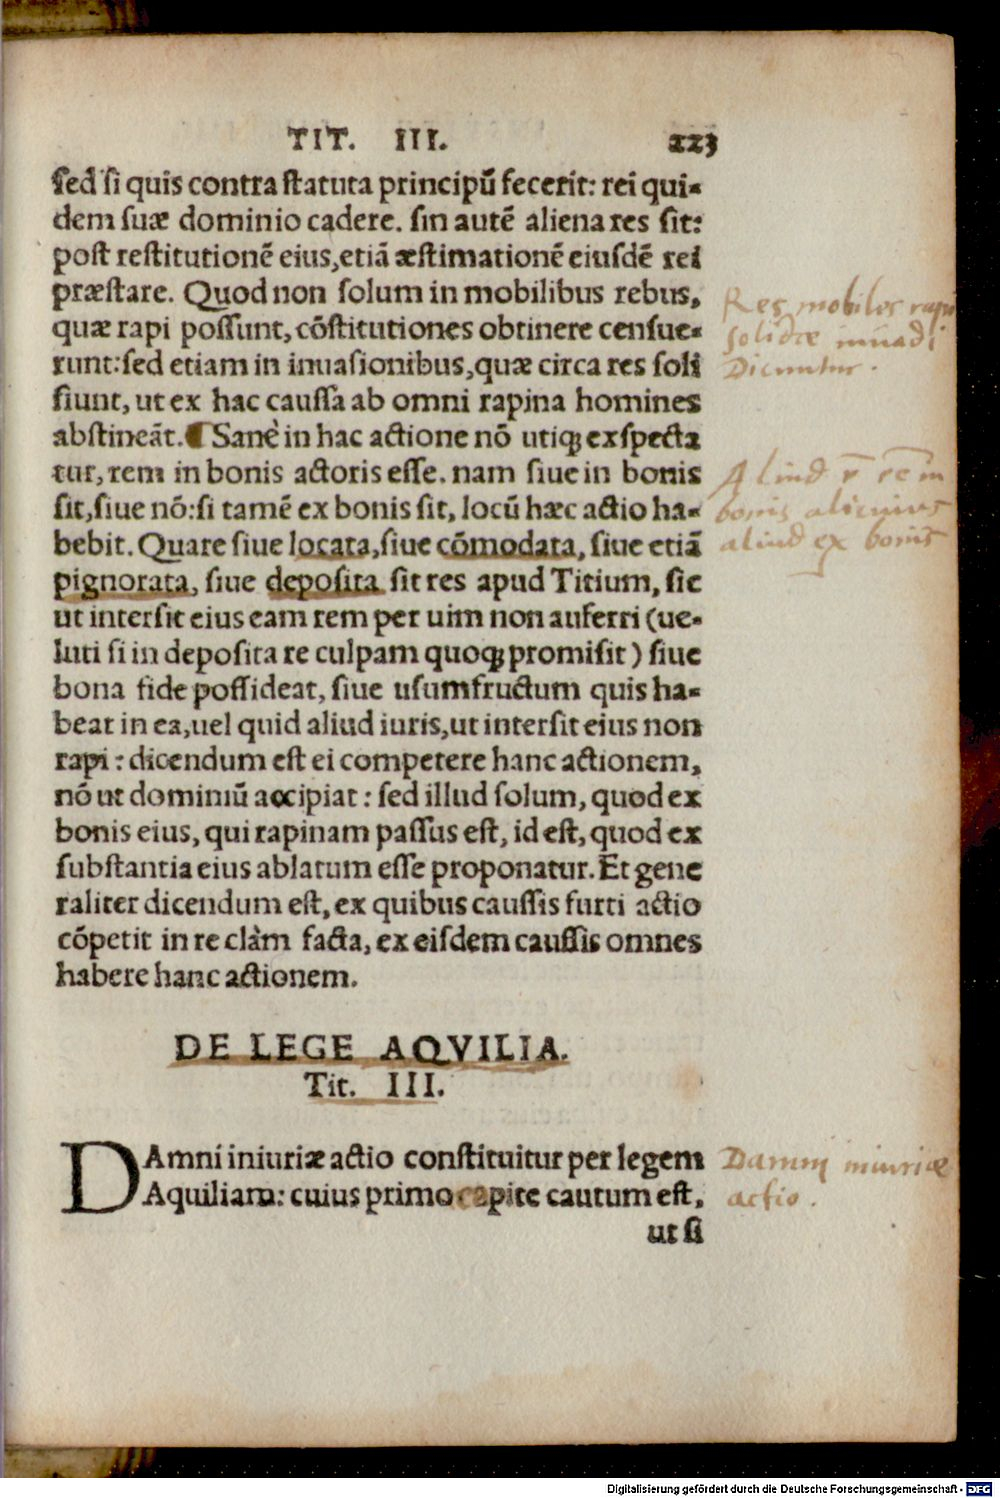 TIT. III. 223
sed si quis contra statuta principū fecerit: rei qui-
dem suæ dominio cadere. sin autē aliena res sit:
post restitutionē eius, etiā æstimationē eiusdē rei
præstare. Quod non solum in mobilibus rebus,
quæ rapi possunt, cōstitutiones obtinere censue-
runt: sed etiam in inuasionibus, quæ circa res soli
fiunt, ut ex hac caussa ab omni rapina homines
abstineāt. ¶ Sanè in hac actione nō utiqꝫ exspecta
tur, rem in bonis actoris esse. nam siue in bonis
sit, siue nō: si tamē ex bonis sit, locū hæc actio ha-
bebit. Quare siue locata, siue cōmodata, siue etiā
pignorata, siue deposita sit res apud Titium, sic
ut intersit eius eam rem per uim non auferri (ue-
luti si in deposita re culpam quoqꝫ promisit) siue
bona fide possideat, siue usumfructum quis ha-
beat in ea, uel quid aliud iuris, ut intersit eius non
rapi: dicendum est ei competere hanc actionem,
nō ut dominiū accipiat: sed illud solum, quod ex
bonis eius, qui rapinam passus est, id est, quod ex
substantia eius ablatum esse proponatur. Et gene
raliter dicendum est, ex quibus caussis furti actio
cōpetit in re clàm facta, ex eisdem caussis omnes
habere hanc actionem.
DE LEGE AQVILIA.
Tit. III.
DAmni iniuriæ actio constituitur per legem
Aquiliam: cuius primo capite cautum est,
ut si
Res mobiles rapi
solidæ inuadi
Dicuntur.
Aliud in
bonis alicuius
aliud ex bonis
Damni iniuriæ
actio.
Digitalisierung gefördert durch die Deutsche Forschungsgemeinschaft - DFG